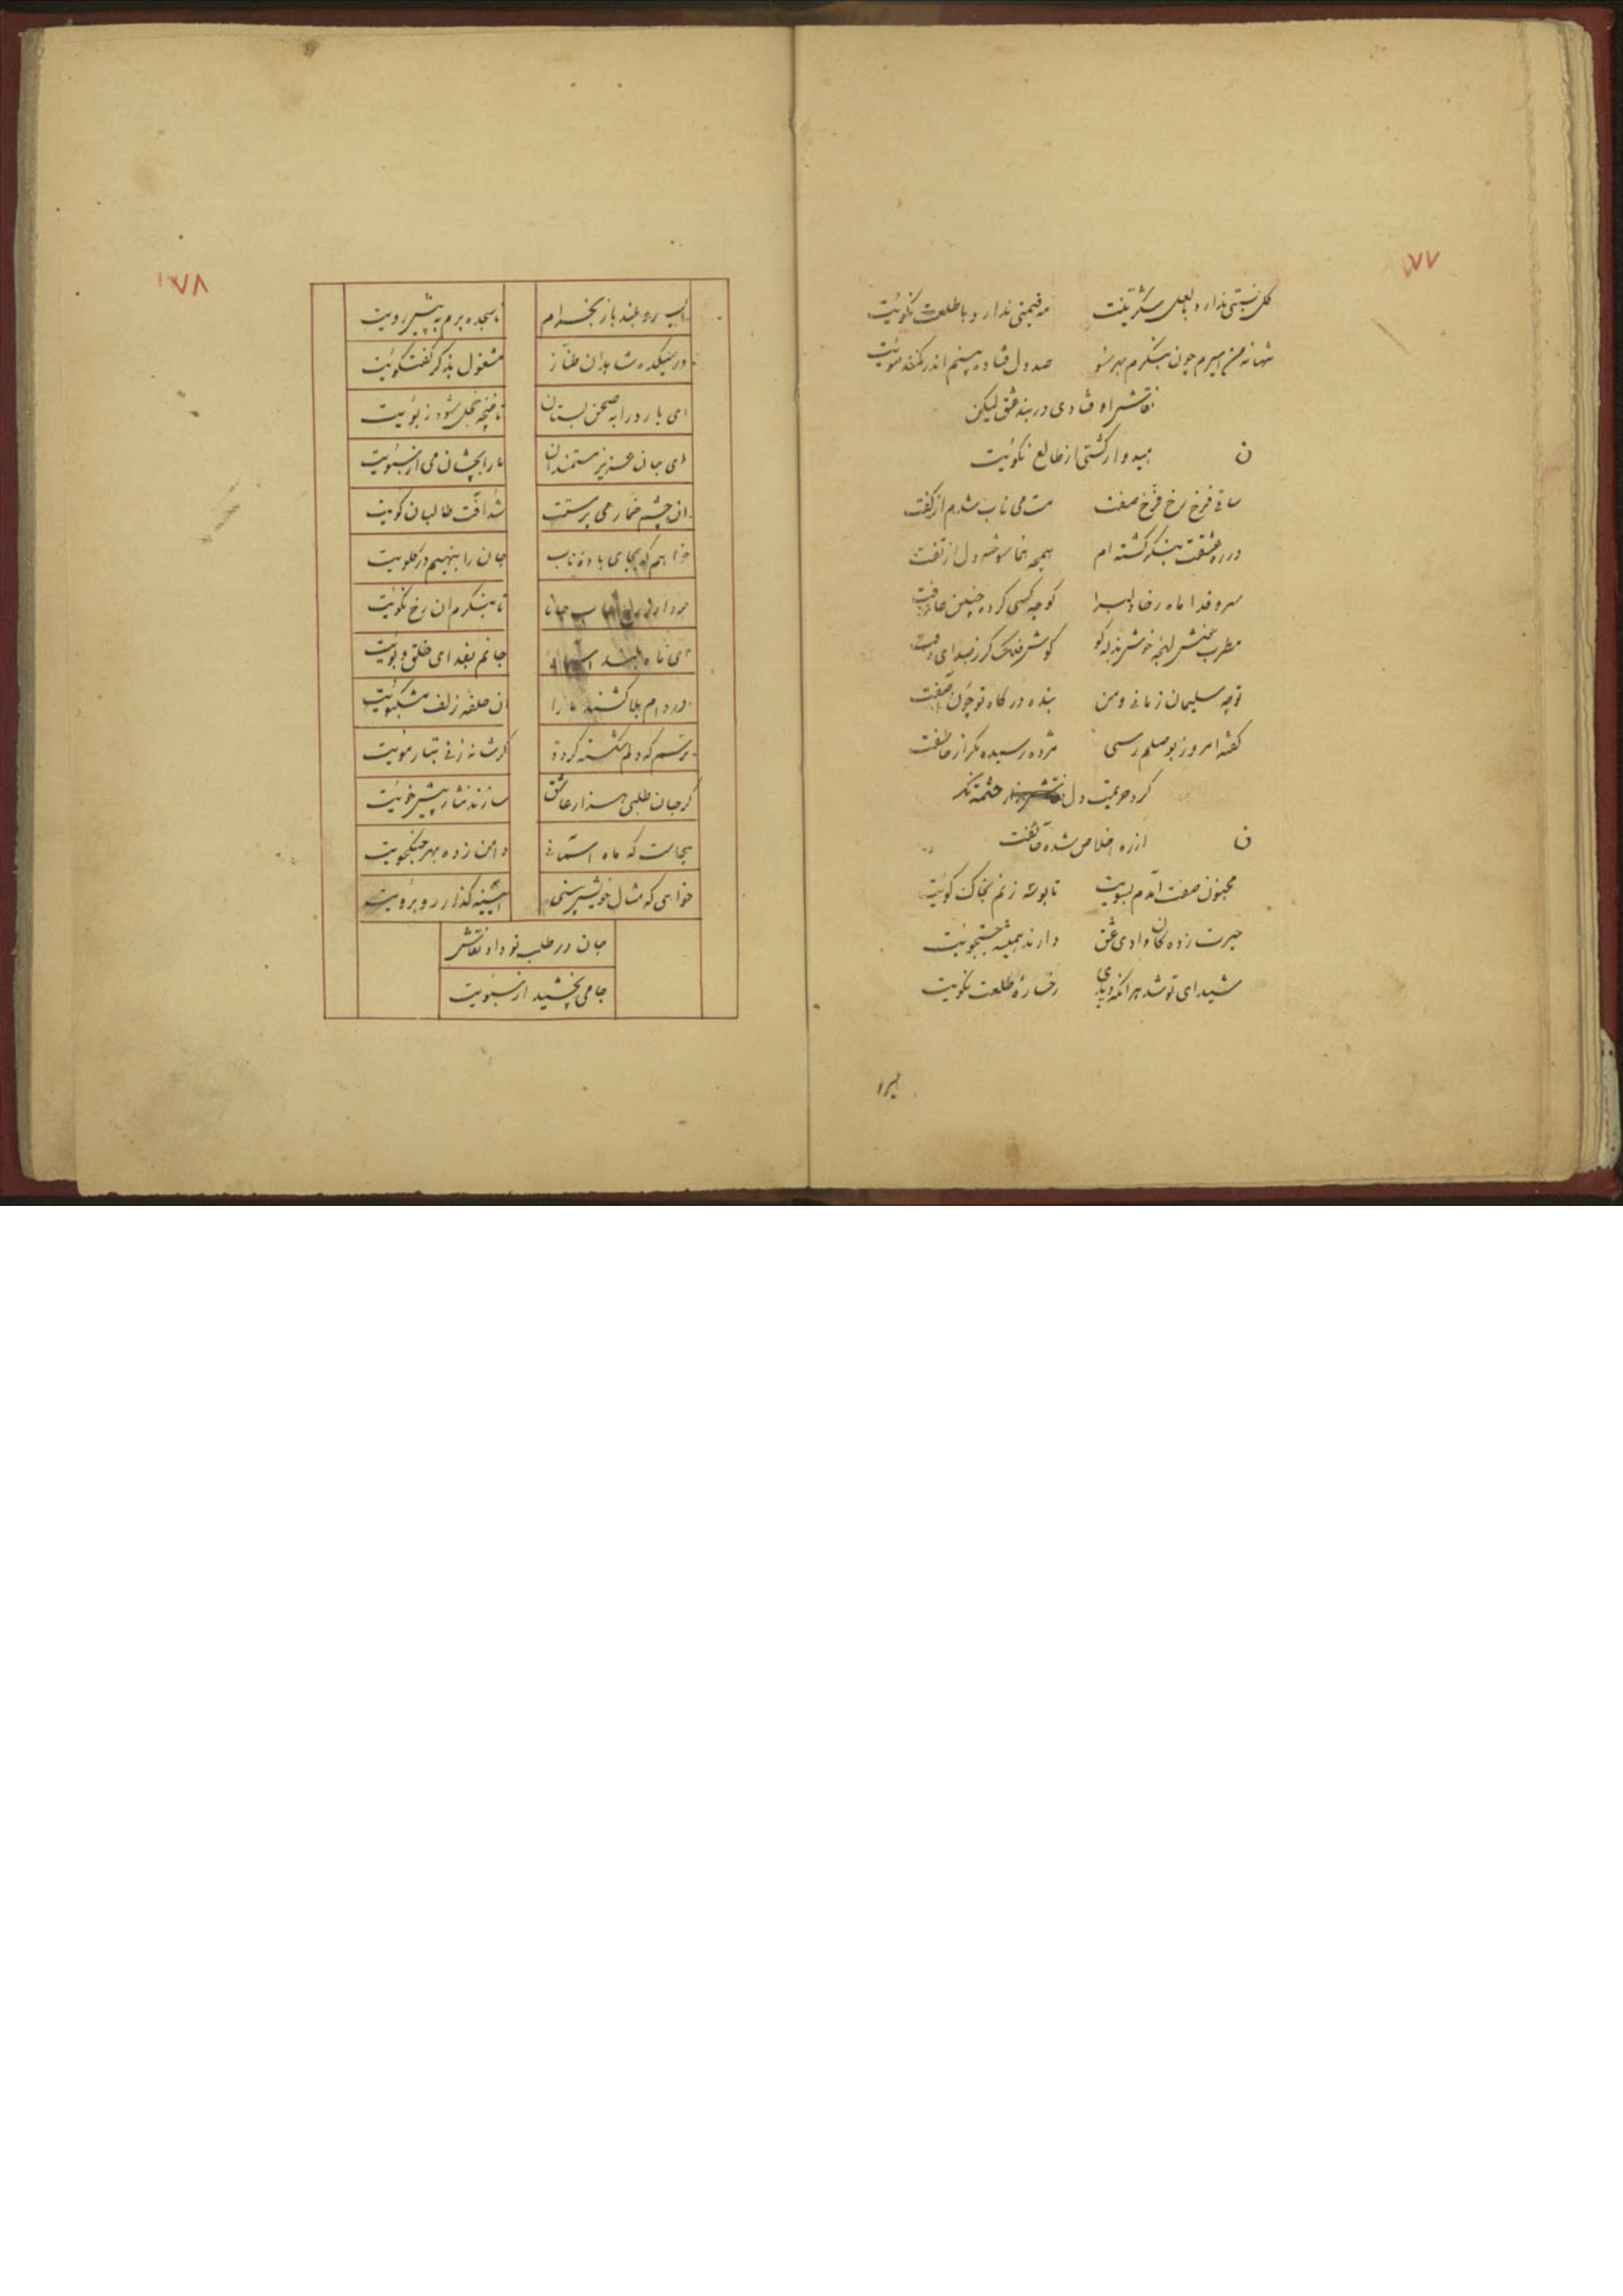 ٧٧
گل نسبتی ندارد با لعل شکرینت مه قیمتی ندارد با طلعت نکوئیت
تنها نه من اسیرم چون بنگرم بهر سو صد دل فتاده بینم اندر کمند موئیت
نقاش اوفتادی در بند عشق لیکن
ن امیدوار کشتی از طالع نکوئیت
ساقی فرخ رخ فرخ صفت مست می ناب شدم از کفت
در ره عشقت بنگر کشته ام همچه سوخته دل از تفت
سرو قدا ماه رخا دلبرا کوچه کسی کرده چنین
مطرب خوش لهجه خوش کو کوش فلک کر ز صدای دفت
تو چه سلیمان زمانی و من بنده درکاه تو چون آصفت
کفته امروز بوصلم رسی مژده رسیده مکر از هاتفت
کرد حریمیت دل نقاش
ن از ره اخلاص شده
مجنون صفت آمدم بسویت تا بوسه زنم بخاک کوئیت
حیرت زده کان وادی عشق دارند همیشه جستجوئیت
شیدای تو شد هر انکه دیدی رخساره طلعت نکویت
٧٨
باز بخرام تا سجده برم به پیش رویت
در میکده شاهدان طناز مشغول بذکر کفتکوئیت
ای یار درا به صحن بستان تا غنچه خجل شود ز بوئیت
ای جان عزیز مستمندان ما را بچشان می از سبوئیت
ان چشم خمار می پرستت شد آفت طالبان کویت
خواهم که بجای باده ناب جان را بنهیم در کلویت
تا بنکرم ان رخ نکوئیت
ای شاه جانم بفدای خلق و بوئیت
در دام بلا کشند ما را ان حلقه زلف مشکبوئیت
ترسم که دلم شکسته کردد کر شانه زنی بتار مویت
کر جان طلبی هزار عاشق سازند نثار پیش خوئیت
بیجاست که ماه آسمانی دامن زده بهر جنکجویت
خواهی که مثال خویش بینی آئینه کذار روبرویت
جان در طلب تو داد نقاش
جامی بچشید از سبویت